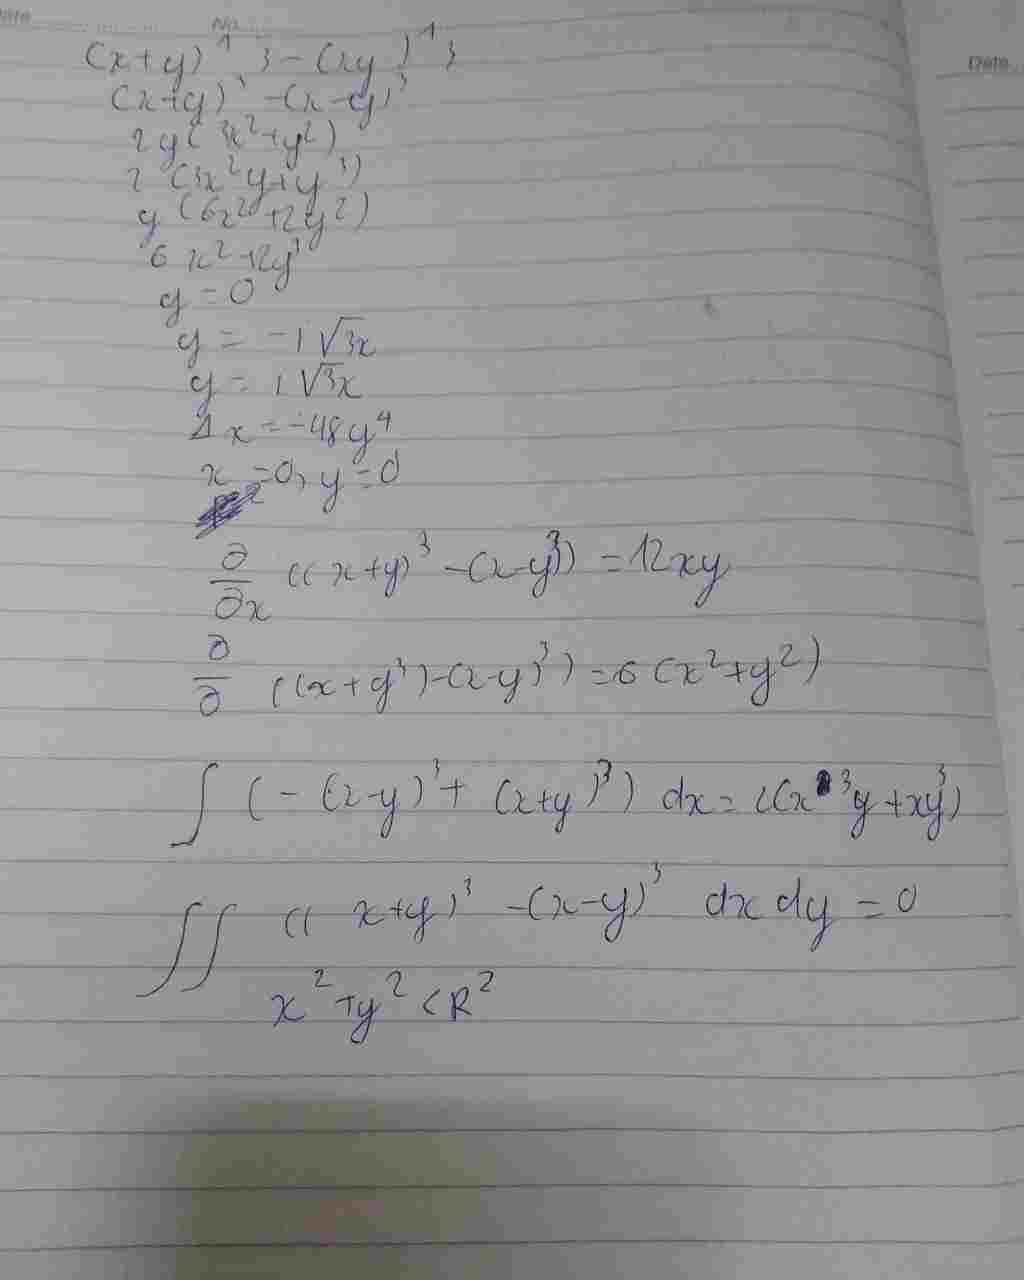 No.
Date
(x+y)^1 3 - (xy)^1 3
(x+y)^3 -(x-y)^3
2y(3x^2+y^2)
2 (3x^2y+y^3)
y (6x^2+2y^2)
6 x^2+2y^3
y = 0
y = -1√3x
y = 1√3x
Δx = -48y^4
x = 0, y = 0
∂/∂x ((x+y)^3 -(x-y^3)) = 12xy
∂/∂ ((x+y^3)-(x-y)^3) = 6(x^2+y^2)
∫ (-(x-y)^3 + (x+y)^3) dx = 2(x^3y+xy^3)
∬ ((x+y)^3 -(x-y)^3 dx dy = 0
x^2+y^2<R^2